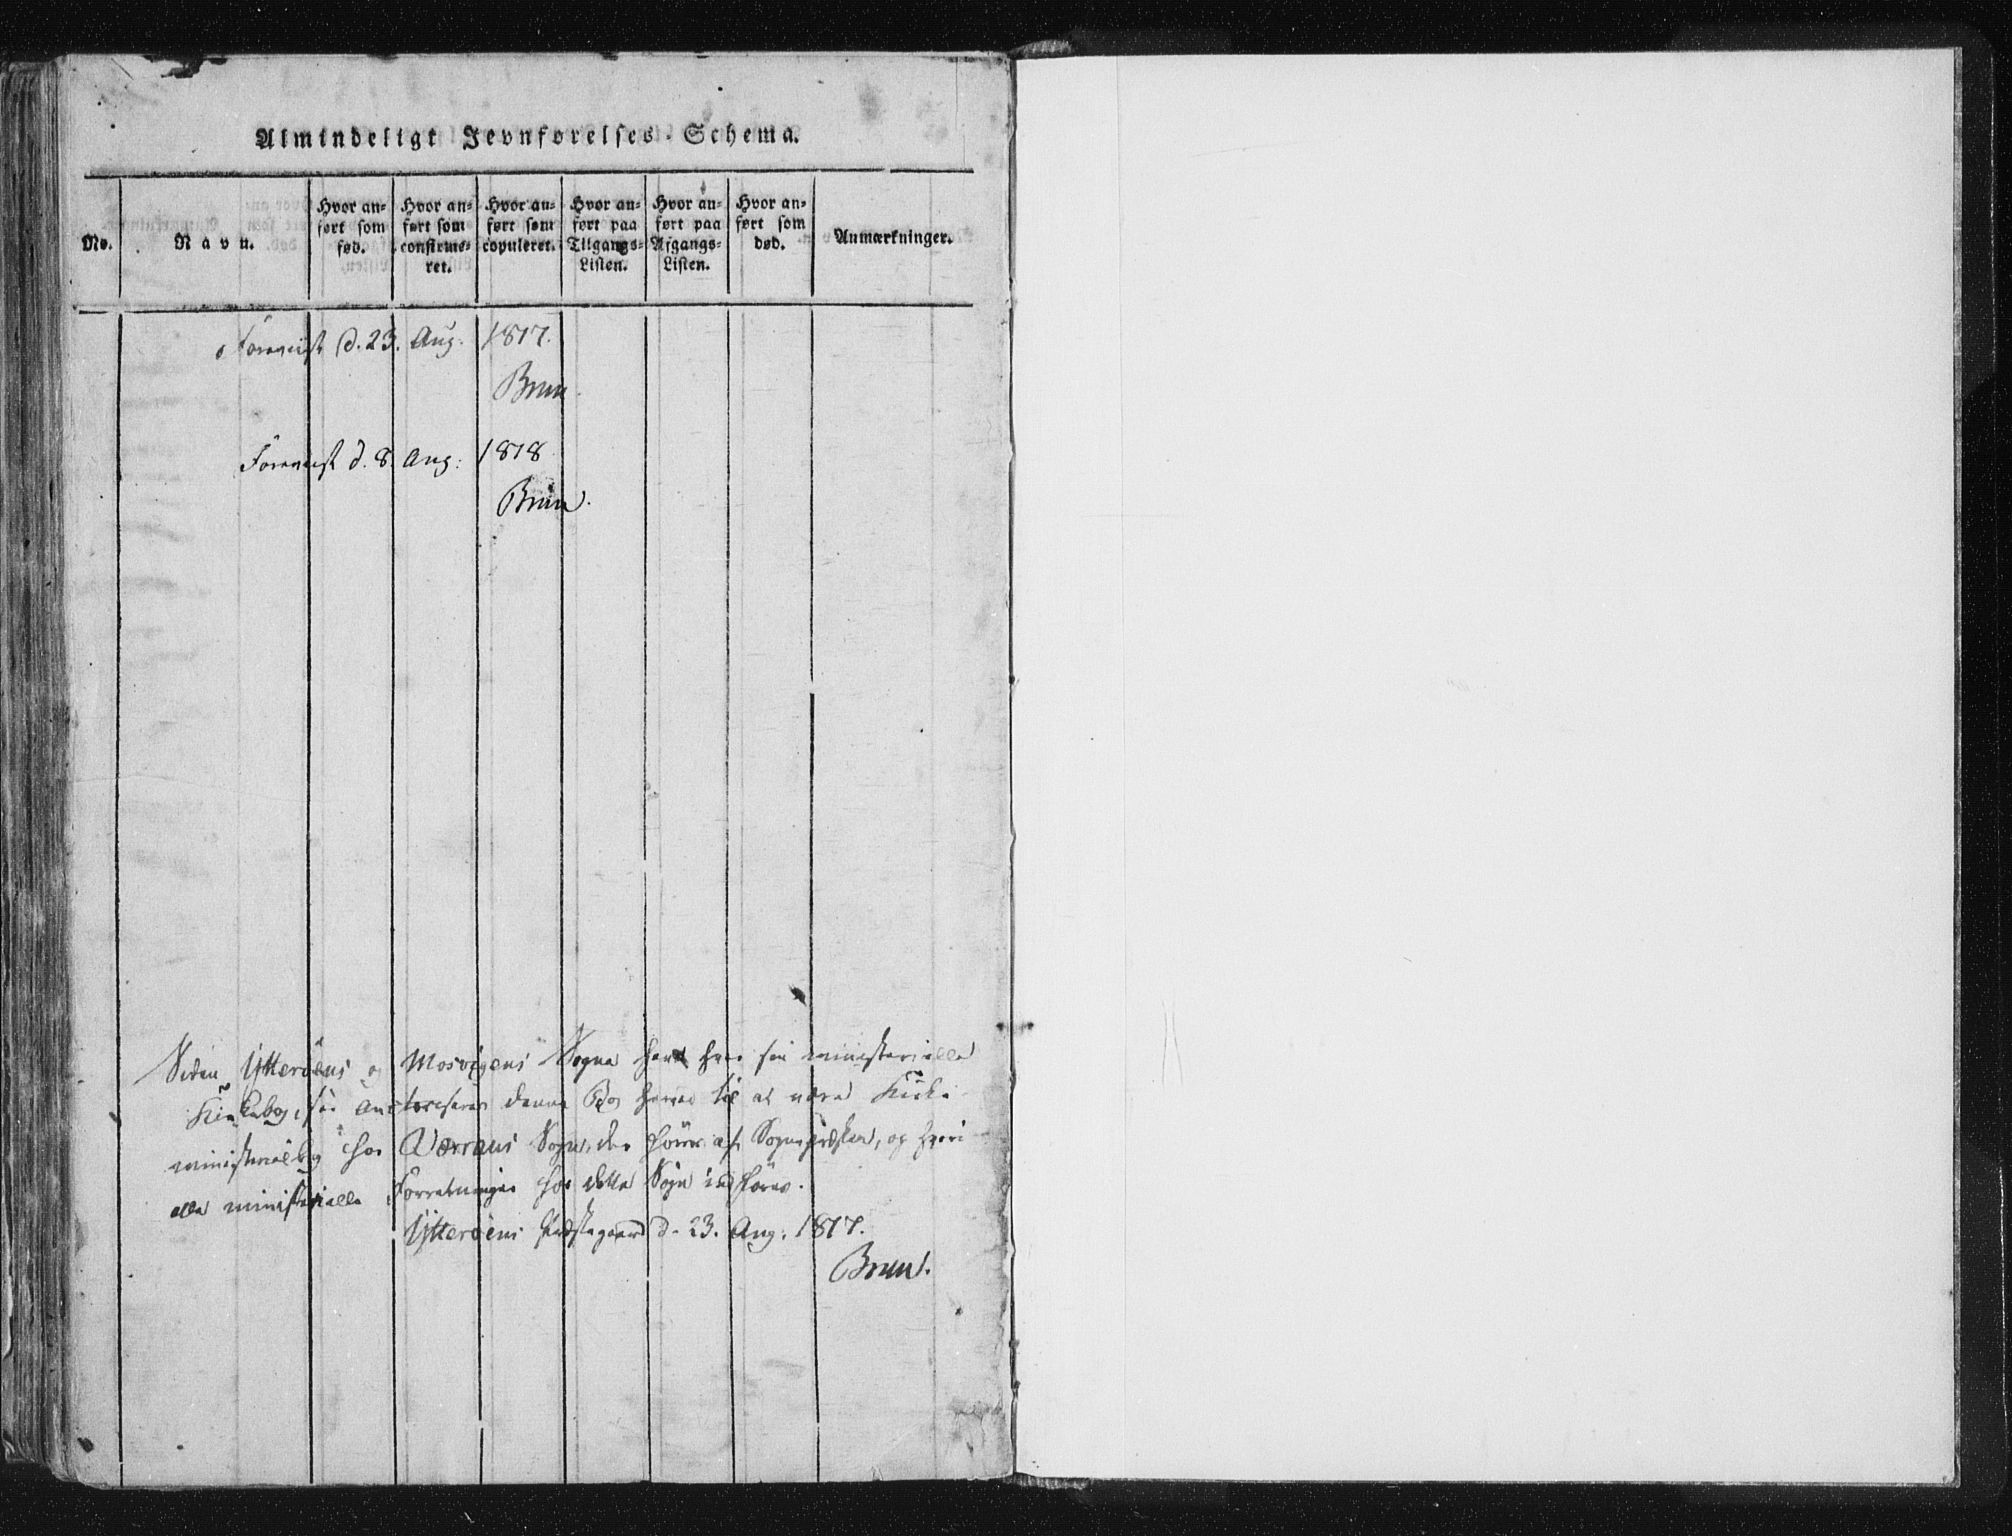 Almindeligt Jevnførelses-Schema.
No.
Navn.
Hvor an-
ført som
fød.
Hvor an-
ført som
confirme-
ret.
Hvor an-
ført som
copuleret.
Hvor an-
ført paa
Tilgangs-
Listen.
Hvor an-
ført paa
Afgangs-
Listen.
Hvor an-
ført som
død.
Anmærkninger.
Foreviist d. 23. Aug. 1817.
Brun.
Foreviist d. 8. Aug: 1818
Brun.
Siden Ytterøens og Mosvigens Sogne have hver sin ministerielle
Kirkebog, saa autoriseres denne Bog herved til at være Kirke-
ministerialbog for Værrans Sogn, der føres af Sognepræsten, og hvori
alle ministerielle Forretninger for dette Sogn indføres.
Ytterøens Præstegaard d. 23. Aug. 1817.
Brun.